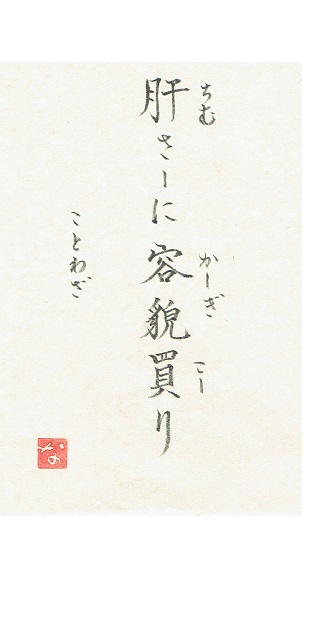 肝さーに容貌買り
ちむ
かーぎ
こー
ことわざ
な